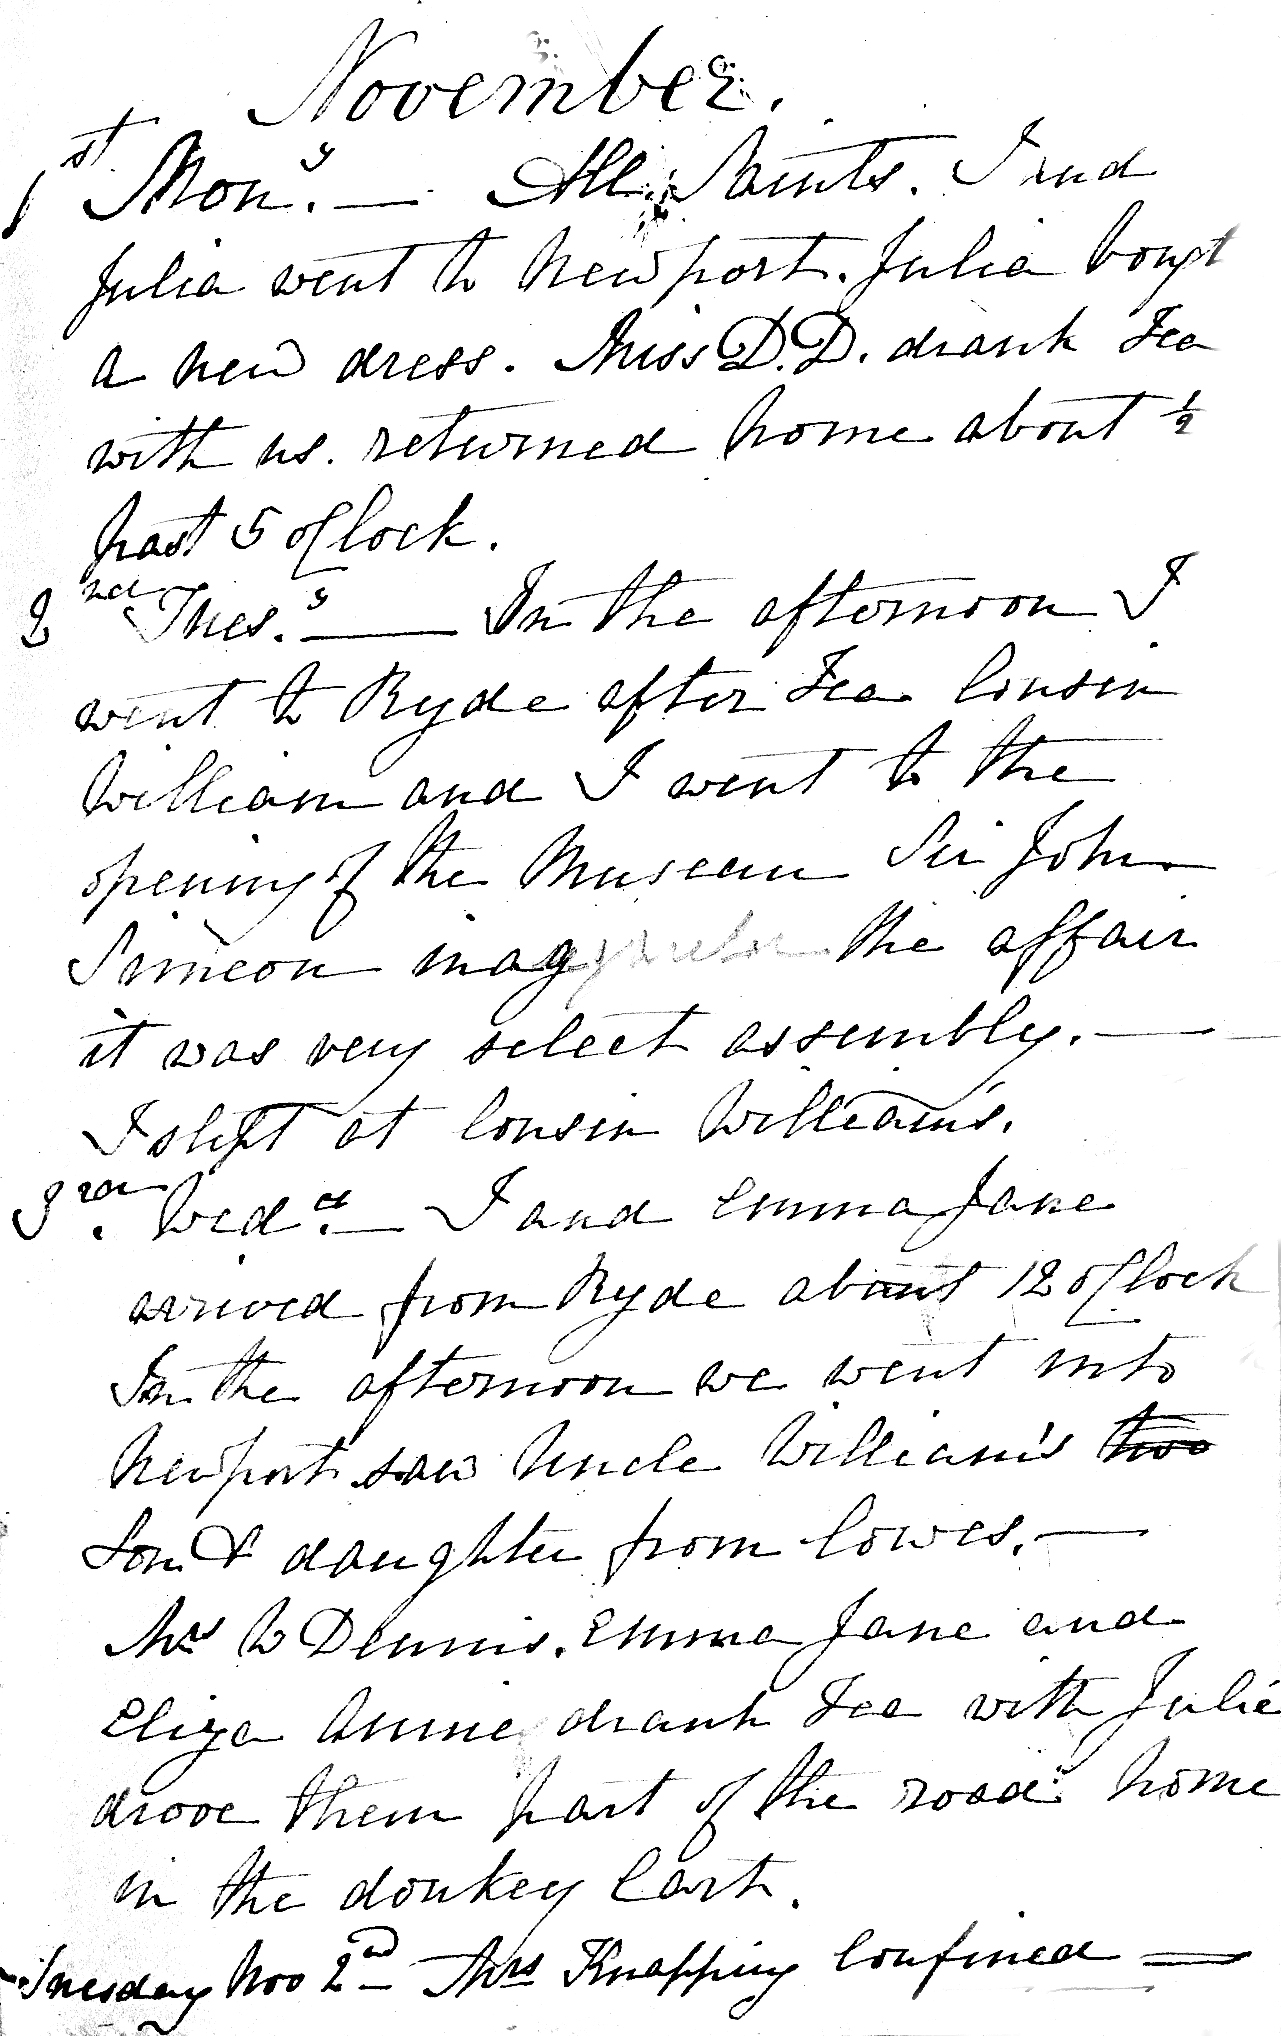 November.
1st Mony. — All Saints. I and
Julia went to Newport. Julia bougt
a new dress. Miss D.D. drank Tea
with us. returned home about ½
past 5 oClock.
2nd Tues.y — In the afternoon I
went to Ryde after Tea Cousin
William and I went to the
opening of the Museum Sir John
Simeon the affair
it was very select assembly. —
I slept at Cousin William's.
3rd. Wed.d — I and Emma Jane
arrived from Ryde about 12 oClock
In the afternoon we went into
Newport saw Uncle William's two
Son & daughter from Cowes. —
Mrs W Dennis. Emma Jane and
Eliza Annie drank Tea with Julie
drove them part of the road home
in the donkey Cart.
Tuesday Nov 2nd — Mrs Knapping Confined =